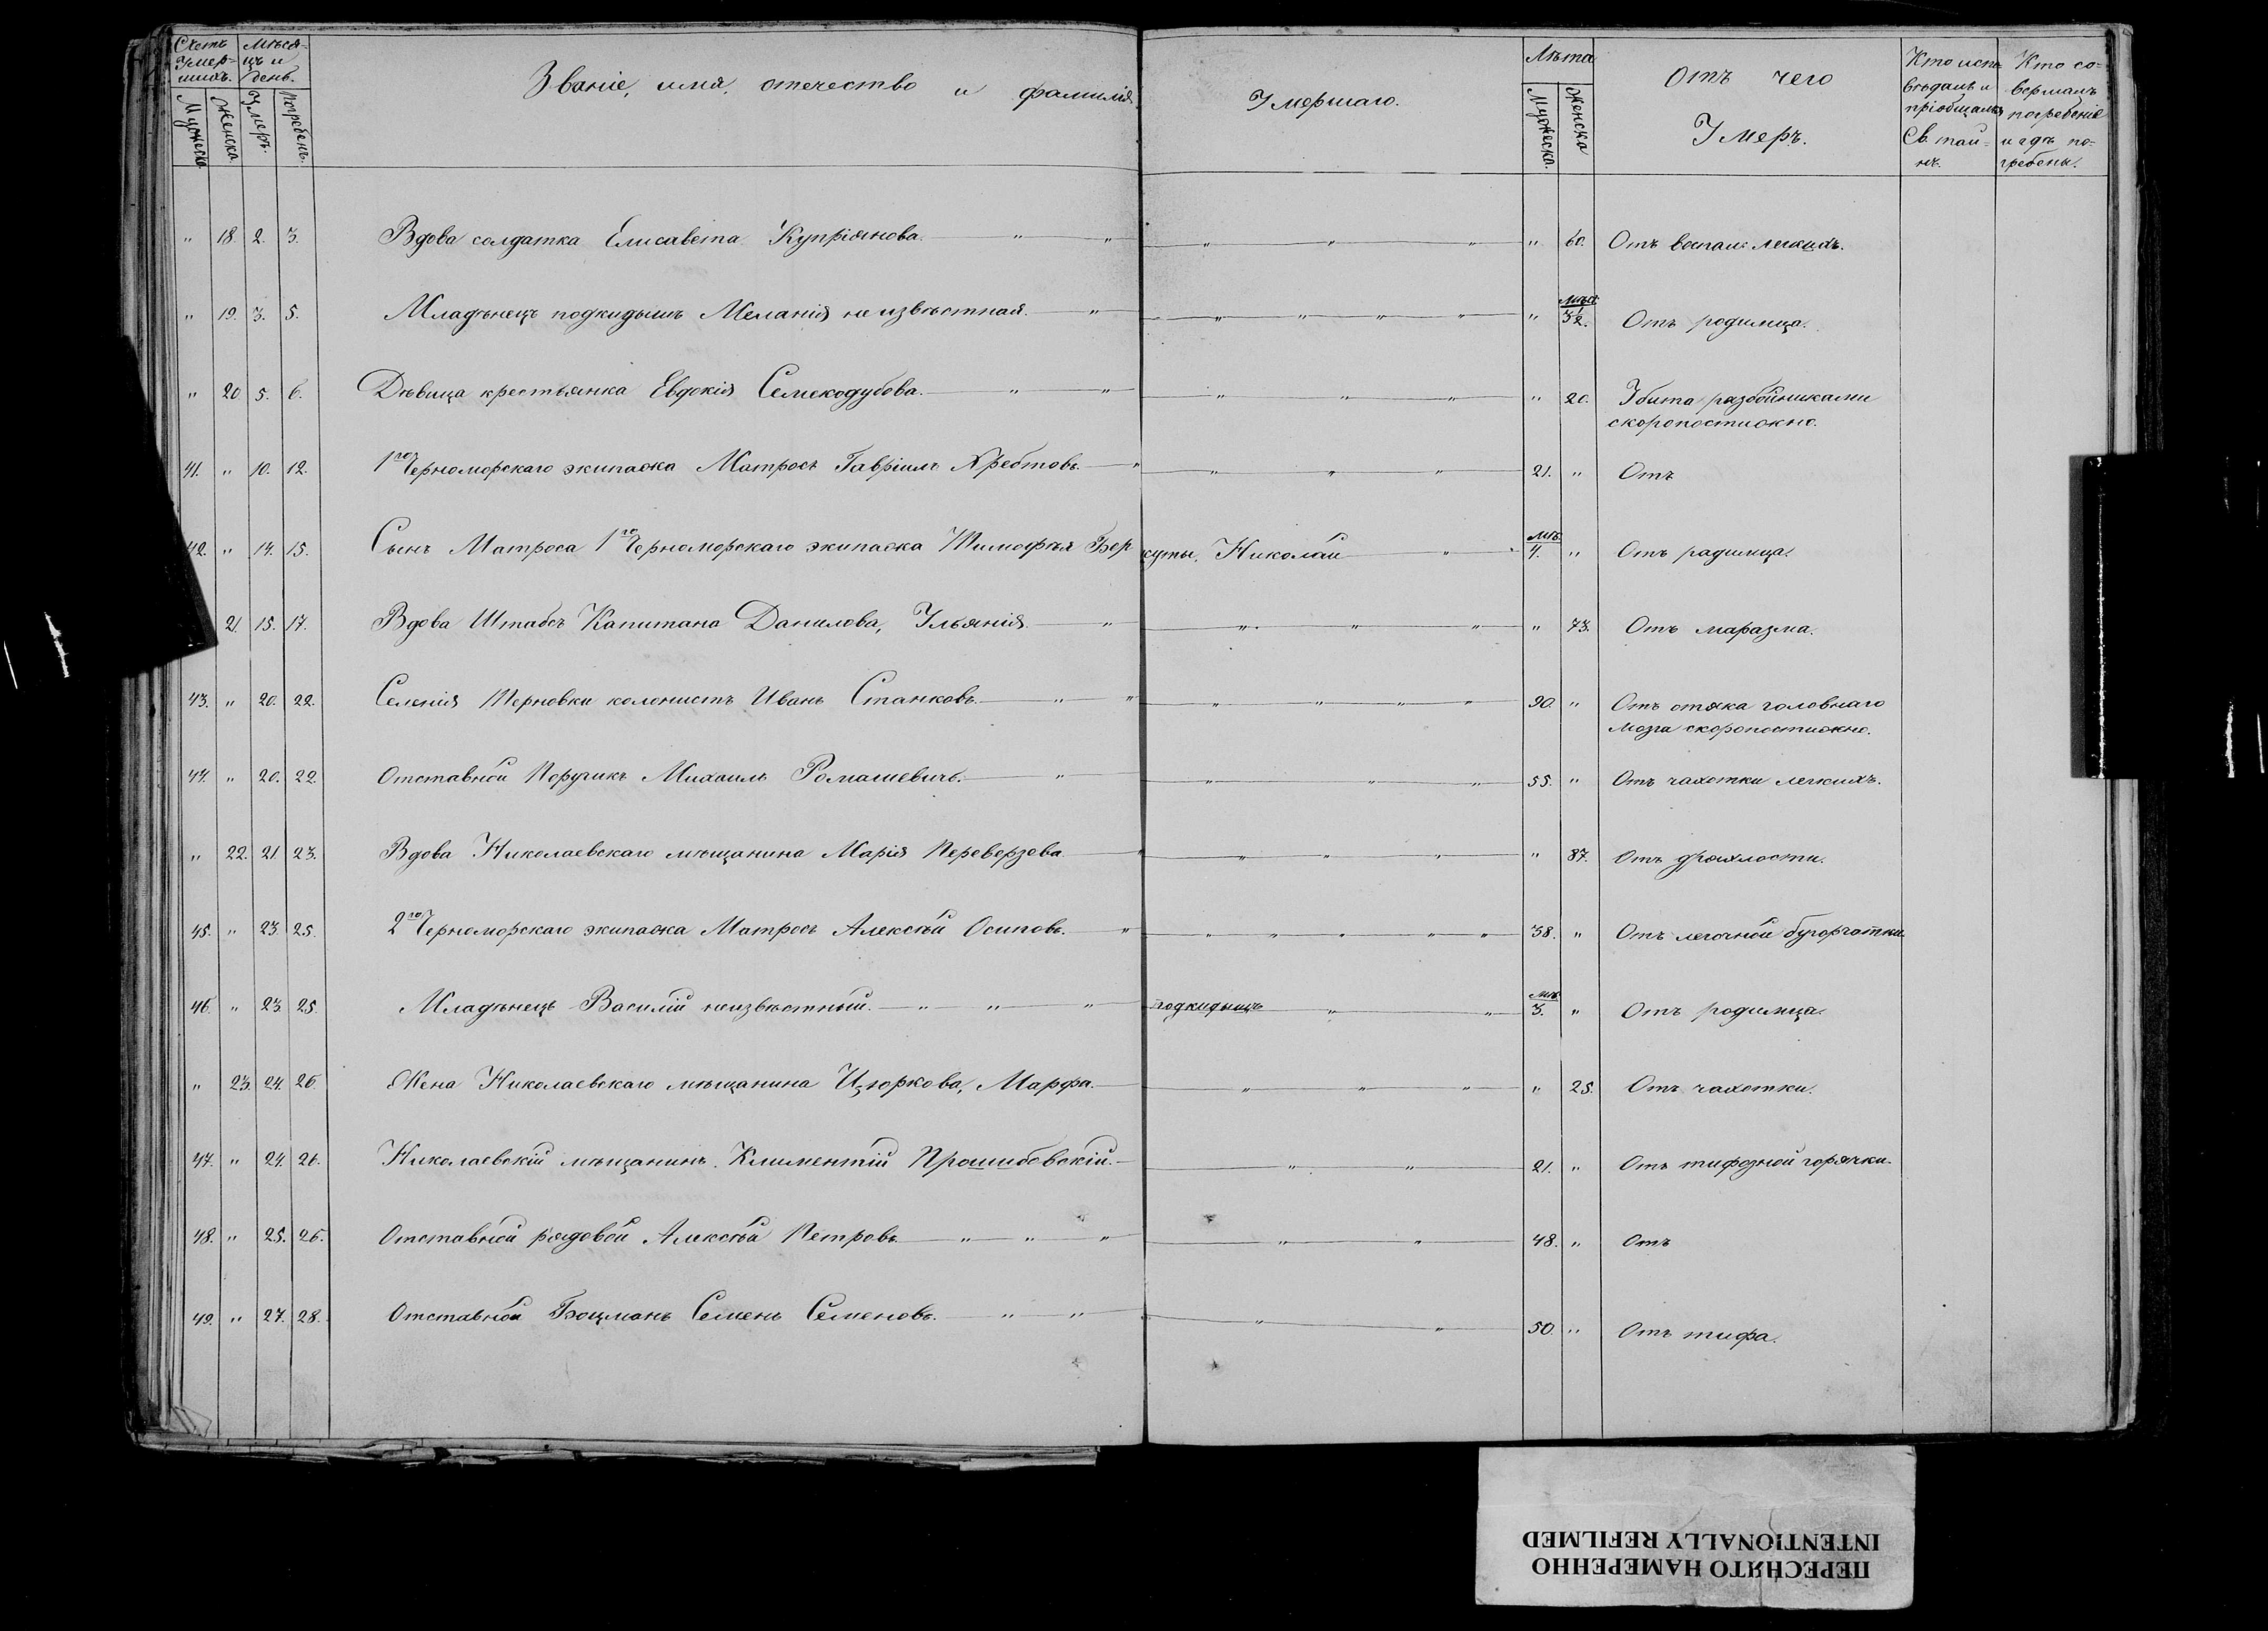 Счетъ Умер-шихъ. Мѣся-цъ и день. Званіе, имя, отечество и фамилія Умершаго. Лѣта Отъ чего Умеръ. Кто испо-вѣдалъ и пріобщалъ Св. тай-нъ. Кто со-вершалъ погребеніе и гдѣ по-гребены.
Мужеска. Женска. Умеръ. Погребенъ. Мужеска. Женска
" 18. 2. 3. Вдова солдатка Елисавета Купріянова " " " " " " 60. Отъ воспал: легкихъ.
" 19. 3. 5. Младѣнецъ подкидышъ Меланія неизвѣстная. " " " " " " Отъ родимца.
" 20. 5. 6. Дѣвица крестьянка Евдокія Семекодубова. " " " " " " 20. Убита разбойниками
скоропостижно.
41. " 10. 12. 1го Черноморскаго экипажа Матросъ Гавріилъ Хребтовъ. " " " " 21. " Отъ
42. " 14. 15. Сынъ Матроса 1го Черноморскаго экипажа Тимофѣя Беркуты, Николай " " мѣ. 4. " Отъ радимца.
21. 15. 17. Вдова Штабсъ Капитана Данилова, Ульянія. " " " " " 73. Отъ маразма.
43. " 20. 22. Селенія Терновки колонистъ Иванъ Станковъ. " " " " " " 90. " Отъ отека головнаго
мозга скоропостижно.
44. " 20. 22. Отставной Поручикъ Михаилъ Ромашевичъ. " " " " 55. " Отъ чахотки легкихъ.
" 22. 21. 23. Вдова Николаевскаго мѣщанина Марія Переверзова " " " " " 87. Отъ дряхлости.
45. " 23. 25. 2го Черноморскаго экипажа Матросъ Алексѣй Осиповъ. " " " " " " 38. " Отъ легочной бугорчатки.
46. " 23. 25. Младѣнецъ Василій неизвѣстный. " " " подкидышъ " " мѣ. 3. " Отъ родимца.
" 23. 24. 26. Жена Николаевскаго мѣщанина Цюркова, Марфа. " " " " 25. Отъ чахотки.
47. " 24. 26. Николаевскій мѣщанинъ Климентій Прошибовскій. " " 21. " Отъ тифозной горячки.
48. " 25. 26. Отставной рядовой Алексѣй Петровъ " " " " " 48. " Отъ
49. " 27. 28. Отставной Боцманъ Семенъ Семеновъ. " " " " 50. " Отъ тифа.
ПЕРЕСНЯТО НАМЕРЕННО
INTENTIONALLY REFILMED